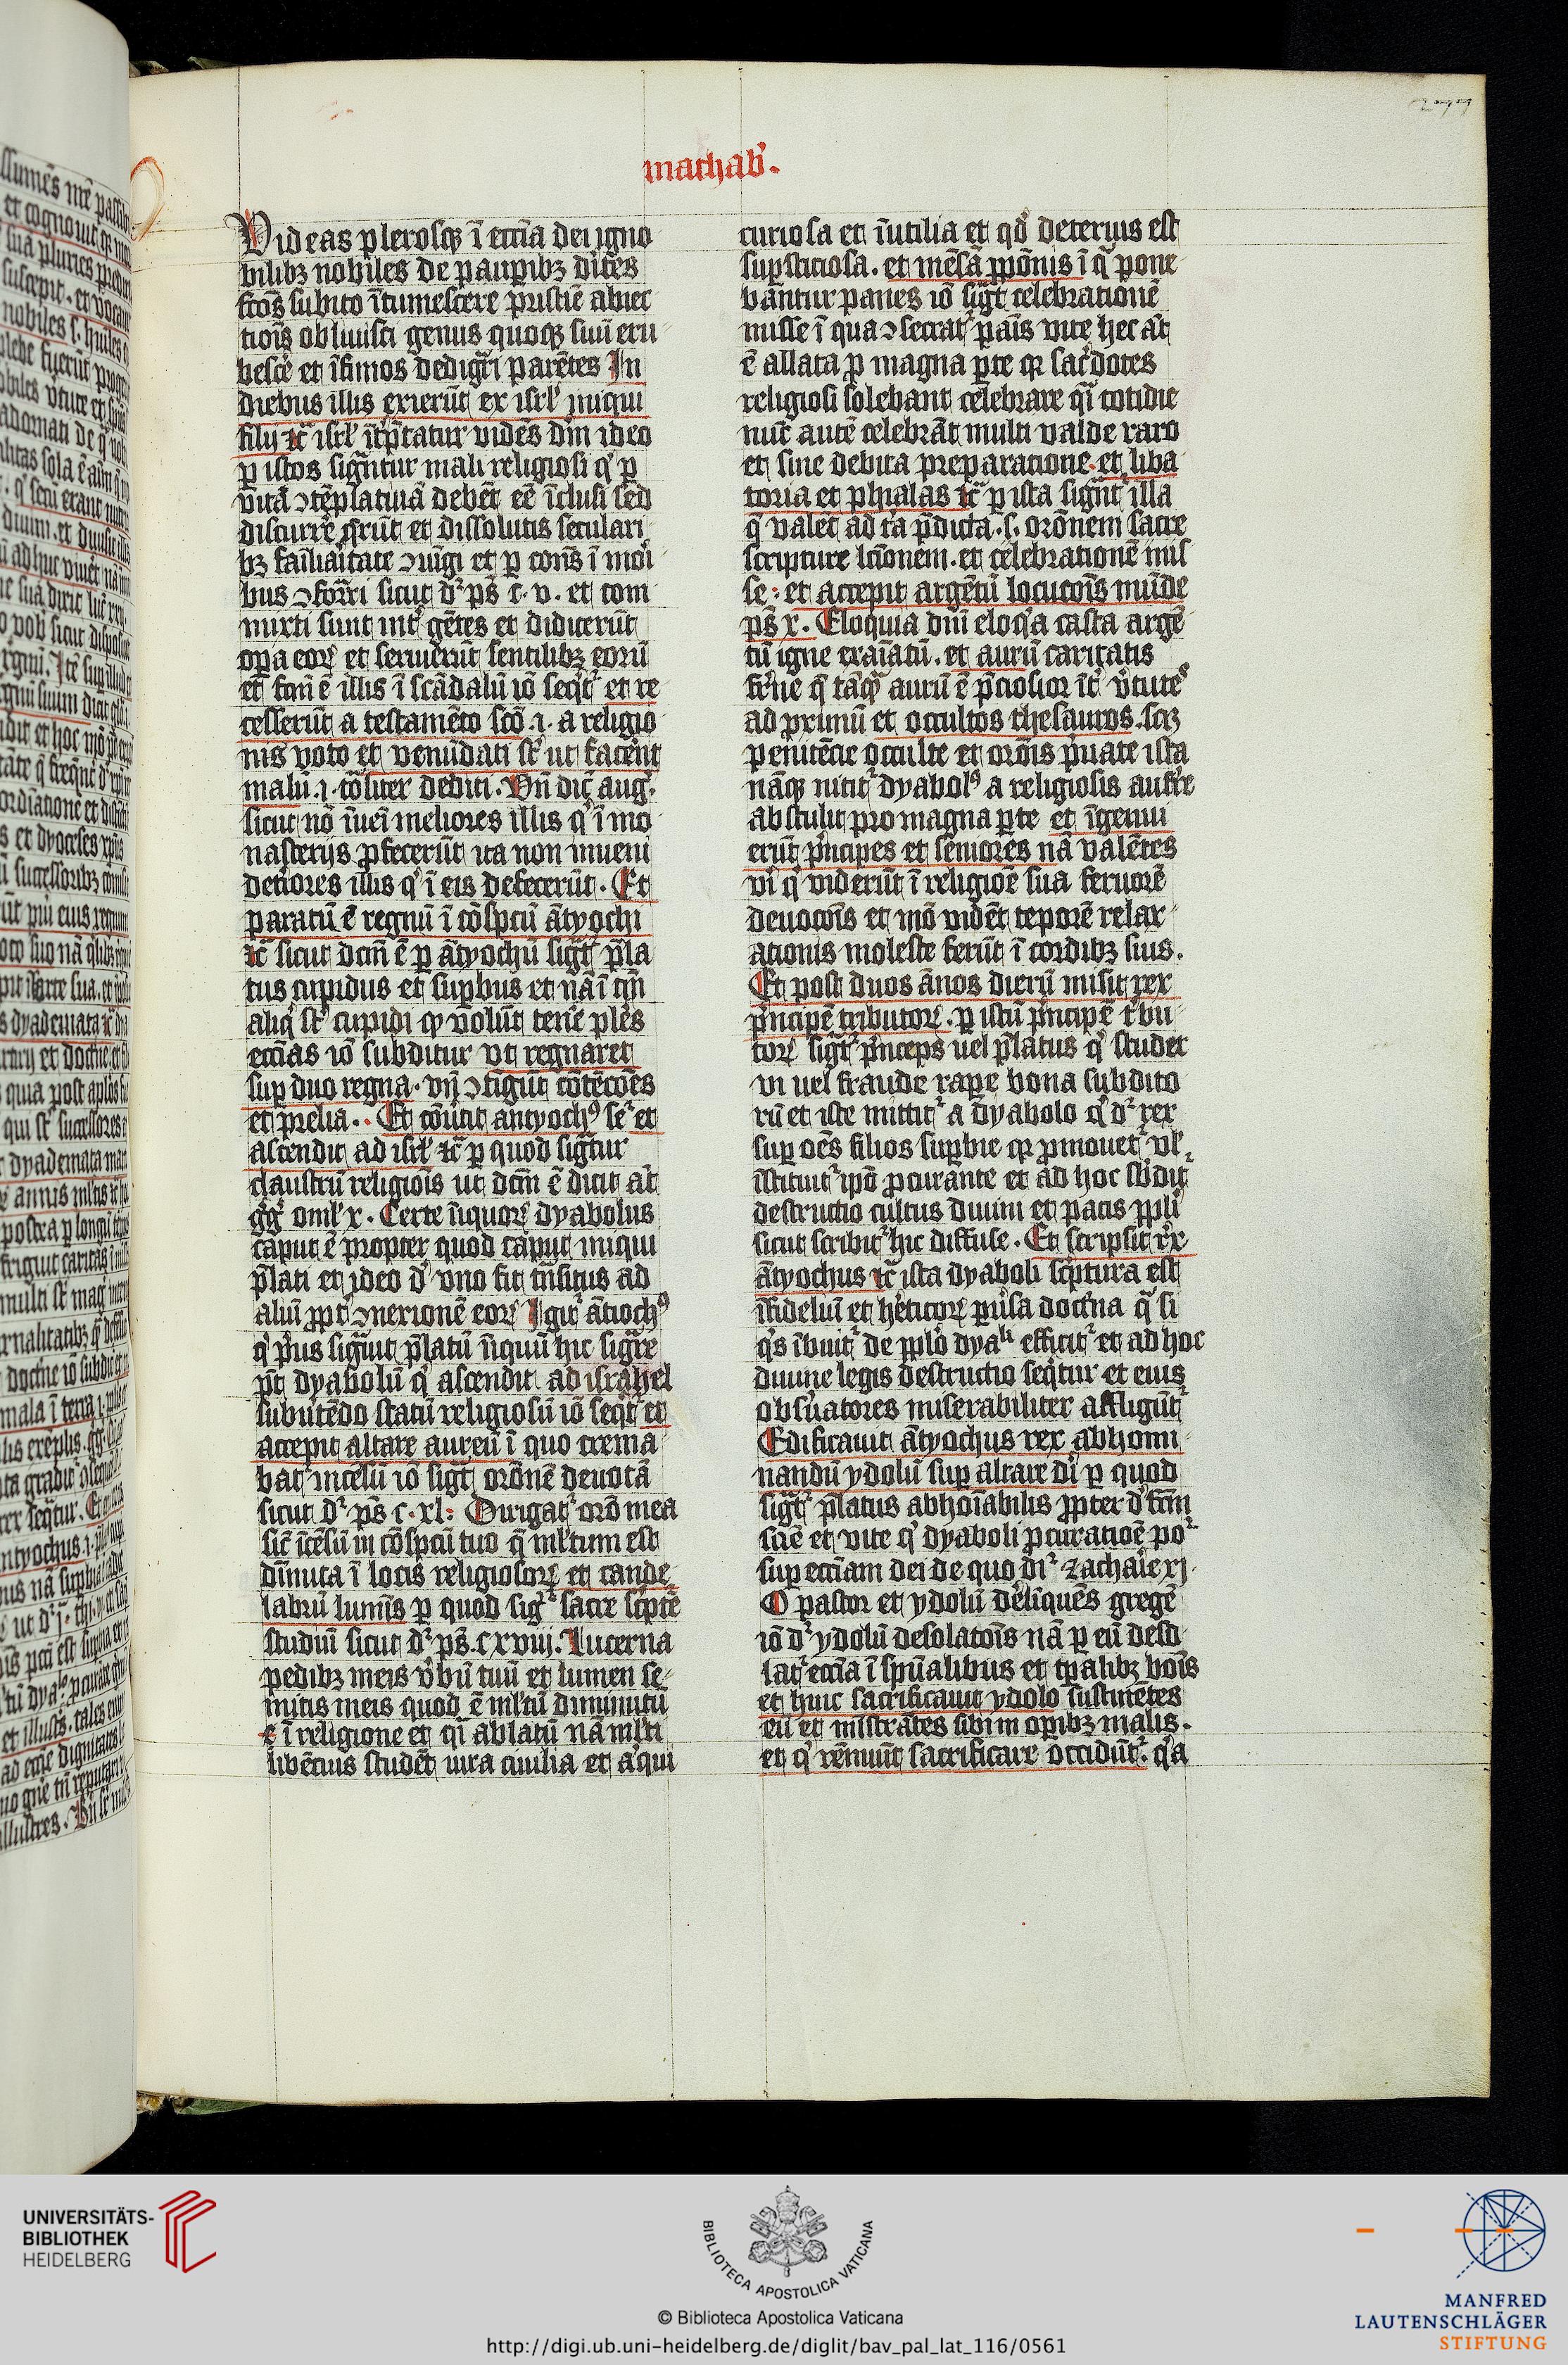 machab̅.
Videas plerosqꝫ ī eccīa dei igno
bilibꝫ nobiles de paupibꝫ dītes
fcōs subito ītumescere pristīe abiec
tiōis obliuisci genus quoqꝫ suū eru
besce̅ et īfimos dedigͣri parētes In
diebus illis exierūt ex isrl̓ iniqui
filij ⁊c̄ isrl̓ īt̓p̄tatur vidēs dm̄ ideo
ꝑ istos signͣntur mali religiosi qͥ ꝑ
vitā ↄtēplatiuā debēt eē īclusi sed
discurre̅ q̄rūt et dissolutis seculari
bꝫ fam̄iliaͥtate ↄiūgi et ꝑ con̄s ī moͥi
bus ↄforͣri sicut dͬ ps̄ c. v. et com
mixti sunt int̓ gētes et didicerūt
opͣa eoꝝ et seruierūt sentilibꝫ eorū
et fcm̄ ē illis ī scādalū iō seqͥtͬ et re
cesserūt a testamēto scō .i. a religio
nis voto et venūdati st̄ ut facēnt
malū .i. tōliter dediti. Vn̄ dic̄ aug̅.
sicut nō īueni meliores illis qͥ ī mo
nasterijs ꝓfecerūt ita non inueni
det̓iores illis qͥ ī eis defecerūt. Et
paratū ē regnū ī cōspcū ātyochi
⁊c̄ sicut dcm̄ ē ꝑ ātyochū sigͣtͬ p̄la
tus cupidus et supͣbus et nā ī tm̄
aliqͥ st̄ cupidi qꝫ volūt tenē ples
eccīas iō subditur vt regnaret
sup̱ duo regna. vn̄ ↄtīgūt cōtēcōes
et prelia. Et cōu̓tit antyochꝰ se̅ et
ascendit ad isrl̓ ⁊c̄ ꝑ quod sigͣtur
claustrū religiōis ut dcm̄ ē dicit at̓
gͥgͥ omīl̓ x. Certe īiquoꝝ dyabolus
caput ē propter quod caput iniqui
p̄lati et ideo dͥ vno fit tn̄situs ad
aliū ꝓpt̓ ↄnexionē eoꝝ Igit̓ ātiochꝰ
qͥ pͥus sigͣuit p̄latū īiquū hic sigͣre
pt̄ dyabolū qͥ ascendit ad israhel
subūtēdo statū religiosū iō seqͥtͬ et
accepit altare aureū ī quo crema
batͬ incēsū iō sigͣt orōnē deuotā
sicut dͬ ps̄ c.xl: Dirigatͬ orō mea
sic̄ īcēsū in cōspcū tuo q̄ ml̓tum est
dīnuta ī locis religiosoꝝ et cande
labrū lumīs ꝑ quod sigͣtͬ sacre sc̓pt̓e
studiū sicut dͬ ps̄. cxviij. Lucerna
pedibꝫ meis v̓bū tuū et lumen se
mitis meis quod ē ml̓tū diminutū
ē ī religione et qͣi ablatū nā ml̓ti
libēcius studēt iura ciuilia et aͥqui
curiosa et īutilia et qd̓ deterius est
sup̱sticiosa. et mēsā ꝓpōnis ī qͣ pone
bantur panes iō sigͣt celebrationē
misse ī qua ↄsecratͬ pāis vite hec at̓
ē allata ꝓ magna ꝑte qꝫ sac̓dotes
religiosi solebant celebrare qͣi cotidie
nūc autē celebrāt multi valde raro
et sine debita preparatione. et liba
toria et phialas ⁊c̄ ꝑ ista signͣt illa
q̄ valēt ad tͥa p̄dicta .s. orōnem sacre
scripture lc̄ionem. et celebrationē mis
se: et accepit argētū locucōis mūde
ps̄ x. Eloquia dnī eloqͥa casta argē
tū igne exaīatū. et aurū caritatis
fr̄ne q̄ tāqͣ aurū ē pͥciosior īt̓ v̓tutes
ad primū et occultos thesauros .scꝫ
penitēcie occulte et orōis pͥuate ista
nāqꝫ nititͬ dyabolꝰ a religiosis aufr̄e
abstulit pro magna ꝑte et īgemu
erūt pͥncipes et seniores nā valētes
viͥ qͥ viderūt ī religiōe sua feruorē
deuocōis et mō vidēt teporē relax
ationis moleste ferūt ī cordibꝫ suis.
Et post duos ānos dierū misit rex
pͥncipē tributoꝝ. ꝑ istū pͥncipē tͥbu
toꝝ sigͣtͬ pͥnceps uel p̄latus qͥ studet
vi uel fraude rape̅ bona subdito
rū et iste mittitͬ a dyabolo qͥ dͬ rex
sup̱ oēs filios supͣbie qꝫ ꝓmouetͬ vl̓
īstituitͬ ip̄o ꝓcurante et ad hoc sb̓dit̓
destructio cultus diuini et pacis ppl̓i
sicut scribitͬ hic diffuse. Et scripsit rex
ātyochus ⁊c̄ ista dyaboli scͥptura est
īfideliū et he̓ticoꝝ pͥu̓sa doctͥna qͣ si
qͥs ībuitͬ de pplo dyaˡⁱ efficitͬ et ad hoc
diuine legis destructio seqͥtur et eius
obs̓uatores miserabiliter affligūtͬ
Edificauit ātyochus rex abhomi
nandū ydolū sup̱ altare dī ꝑ quod
sigͣtͬ p̄latus abhoīabilis ꝓpter dͥfcm̄
scīe et vite qͥ dyaboli ꝓcuratiōe poͬ
sup̱ eccīam dei de quo dīͬ zacharie xj.
O pastor et ydolū de̓liquēs gregē
iō dͬ ydolū desolatōis nā ꝑ eū deso
latͬ eccīa ī spūalibus et tꝑalibꝫ boīs
et huic sacrificauit ydolo sustinētes
eū et mīstrātes sibi in opibꝫ malis.
et qͥ rēnuūt sacrificare occidūtͬ. qͥa
UNIVERSITÄTS-
BIBLIOTHEK
HEIDELBERG
BIBLIOTECA APOSTOLICA VATICANA
© Biblioteca Apostolica Vaticana
http://digi.ub.uni-heidelberg.de/diglit/bav_pal_lat_116/0561
MANFRED
LAUTENSCHLÄGER
STIFTUNG